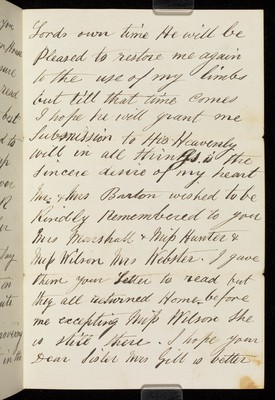 Lords own time He will be
Pleased to restore me again
to the use of my limbs
but till that time comes
I hope he will grant me
Submission to His Heavenly
will in all things is the
Sincere desire of my heart
Mr & Mrs Barton wished to be
Kindly Remembered to you
Mrs Marshall & Miss Hunter &
Miss Wilson Mrs Webster. I gave
them your Letter to read but
they all returned Home before
me excepting Miss Wilson She
is still there. I hope your
Dear Sister Mrs Gill is better